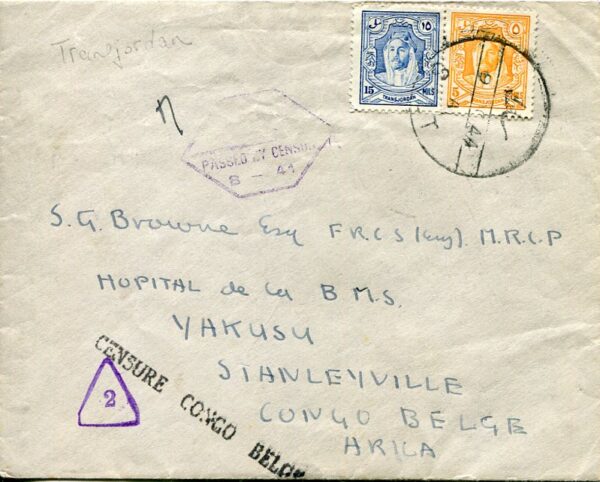 Transjordan
١٥
15 MILS
TRANSJORDAN
٥
TRANSJORDAN
9
44
PASSED BY CENSOR
S - 41
S. G. Browne Esq F.R.C.S (Eng). M.R.C.P
HOPITAL de la B.M.S.
YAKUSU
STANLEYVILLE
CONGO BELGE
ARICA
2
CENSURE CONGO BELGE